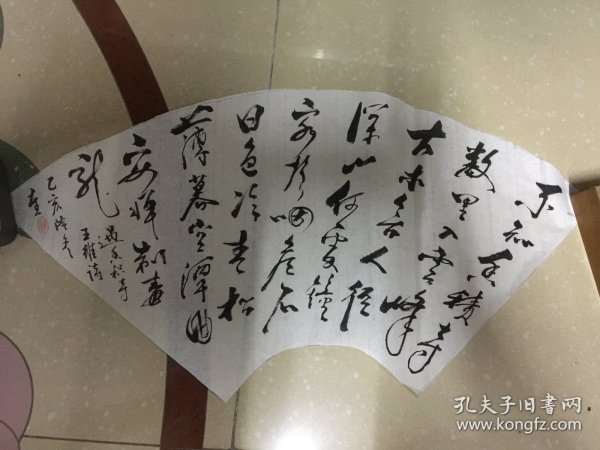 不知香积寺
数里入云峰
古木无人径
深山何处钟
泉声咽危石
日色冷青松
薄暮空潭曲
安禅制毒
龙
过香积寺
王维诗
乙亥
孔夫子旧书网
www.kongfz.com